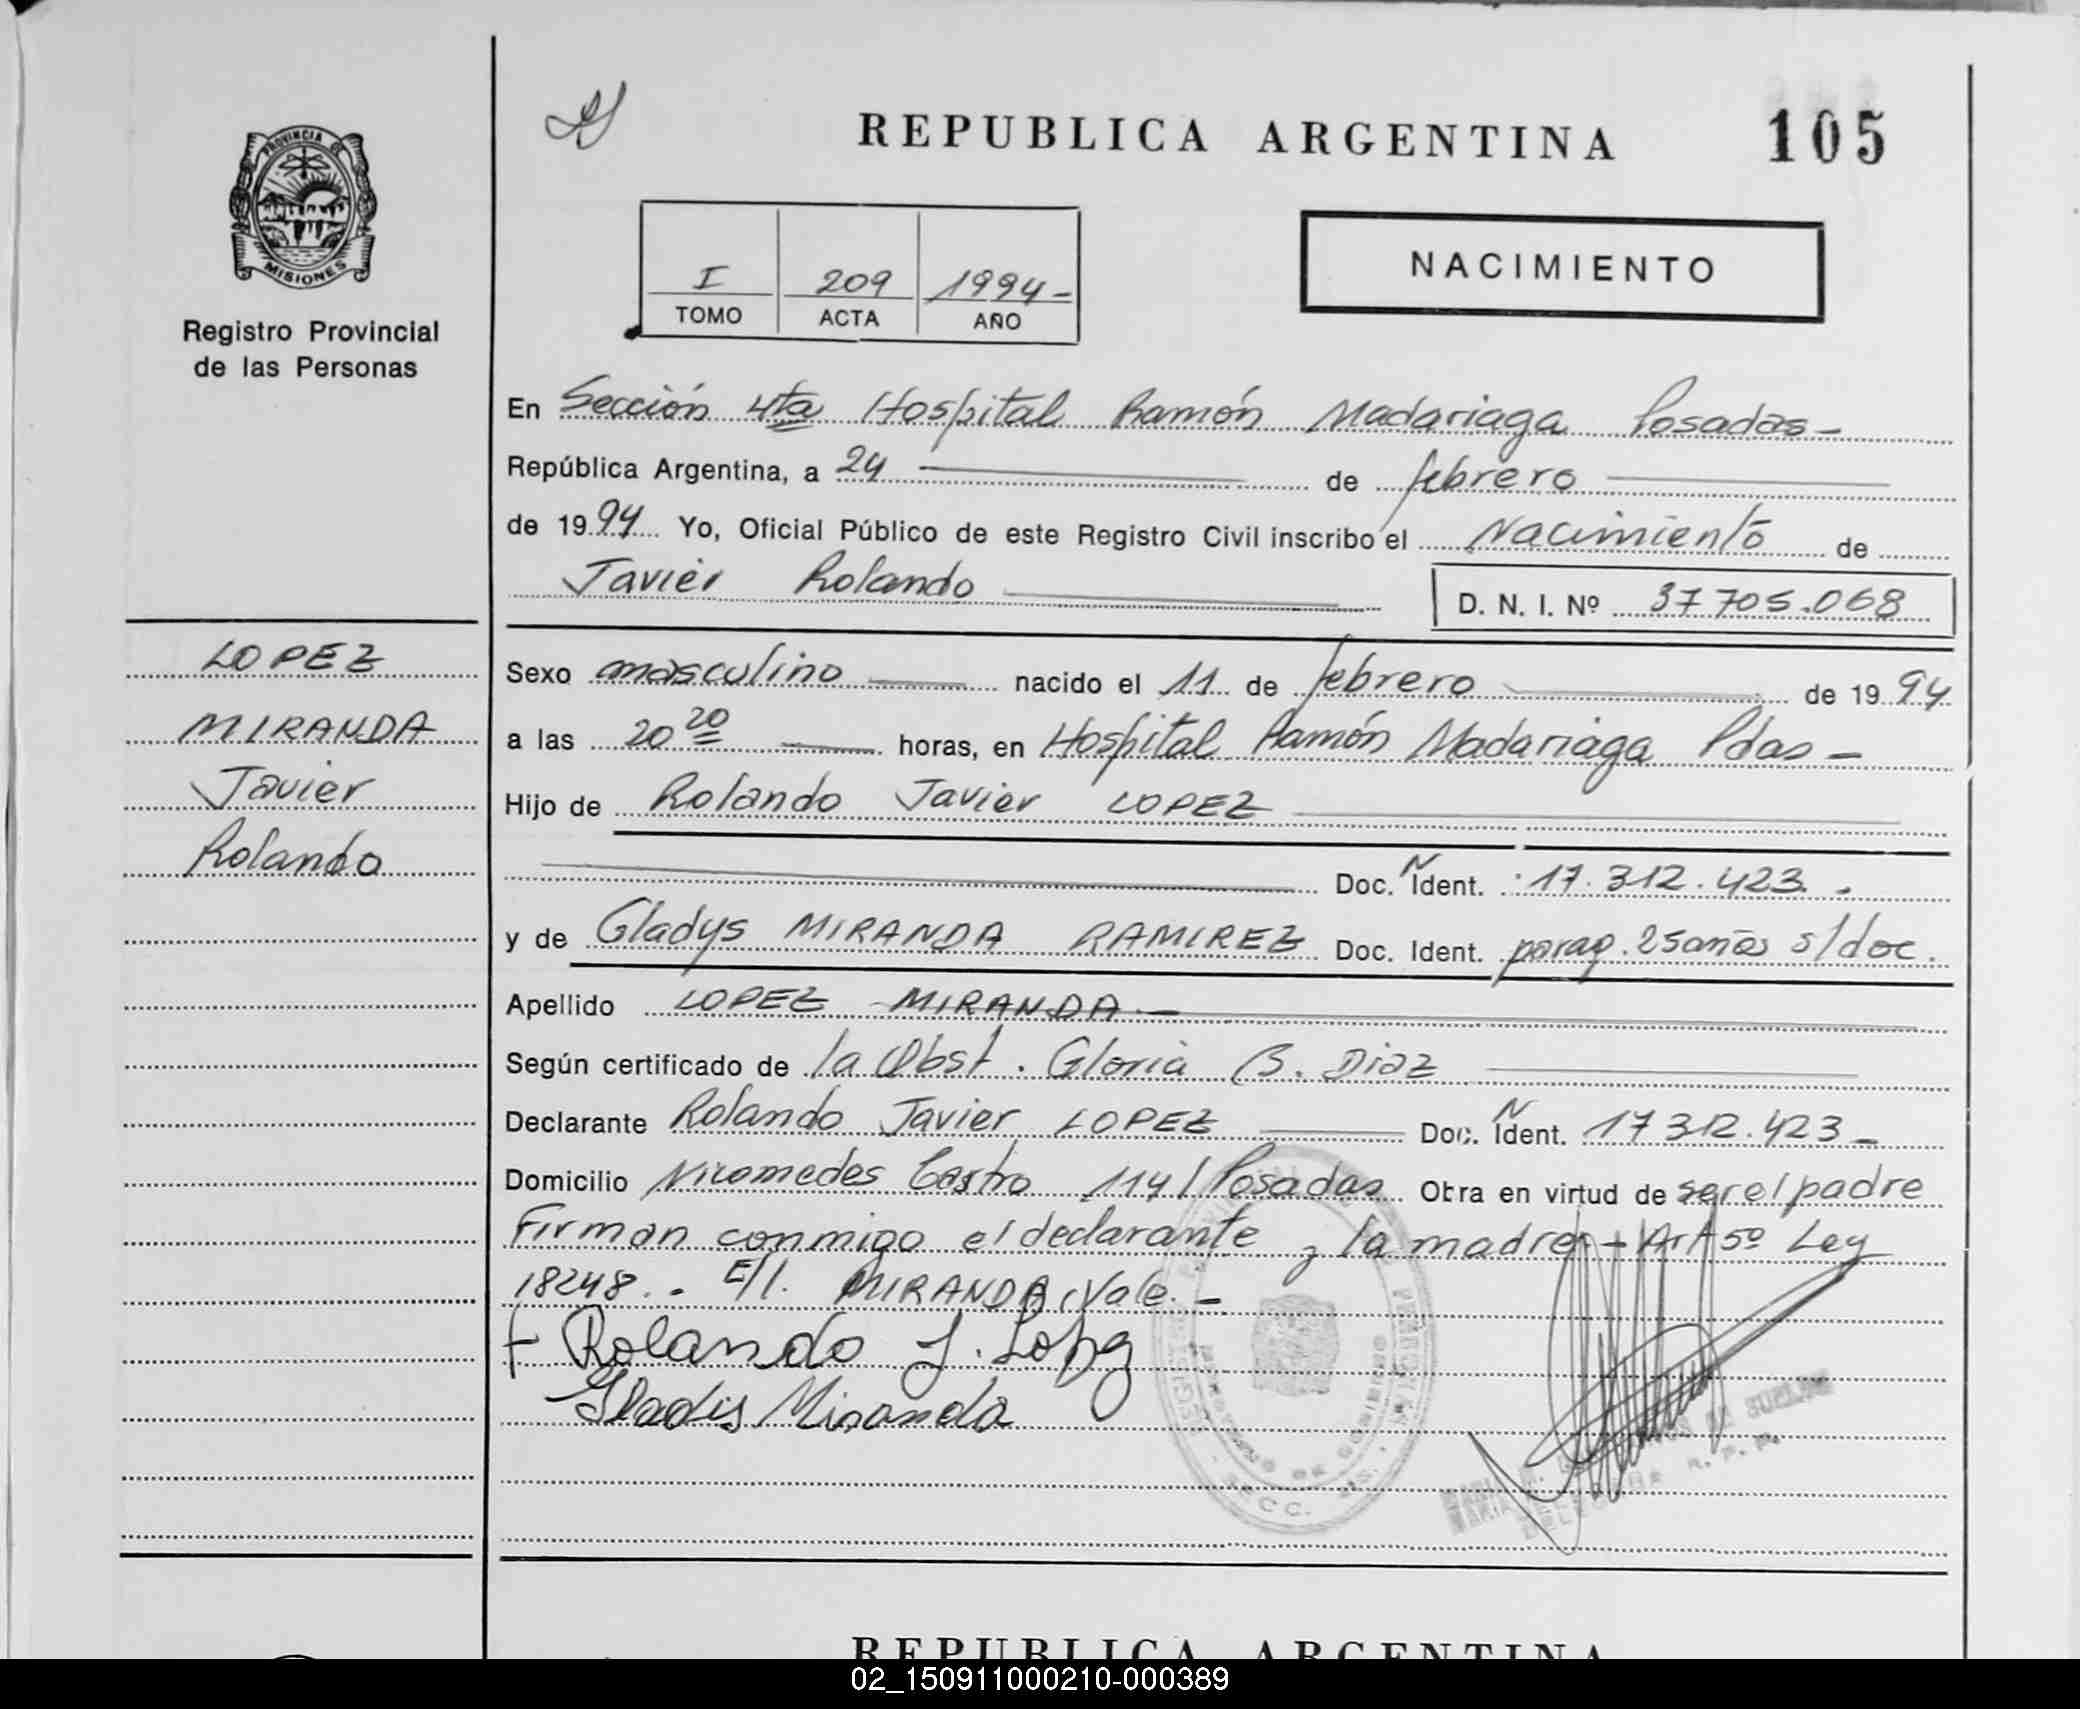 REPUBLICA ARGENTINA
105
PROVINCIA DE
MISIONES
Registro Provincial
de las Personas
NACIMIENTO
I 209 1994-
TOMO ACTA AÑO
En Sección 4ta Hospital Ramón Madariaga Posadas-
República Argentina, a 24 de febrero
de 1994 Yo, Oficial Público de este Registro Civil inscribo el Nacimiento de
Javier Rolando
D. N. I. Nº 37705.068
LOPEZ
MIRANDA
Javier
Rolando
Sexo masculino nacido el 11 de febrero de 1994
a las 20 20 horas, en Hospital Ramón Madariaga Pdas-
Hijo de Rolando Javier LOPEZ
Doc. N Ident. 17.312.423.-
y de Gladys MIRANDA RAMIREZ Doc. Ident. parag. 25 años s/doc.
Apellido LOPEZ MIRANDA.-
Según certificado de la Obst. Gloria B. Diaz
Declarante Rolando Javier LOPEZ Doc. N Ident. 17312.423-
Domicilio Nicomedes Castro 1141 Posadas Obra en virtud de ser el padre
Firman conmigo el declarante y la madre - Art 5º Ley
18248.- E/l. MIRANDA, Vale.-
Rolando J. Lopez
Gladis Miranda
SECC.
DE SUELDO
R. P. P.
REPUBLICA ARGENTINA
02_150911000210-000389